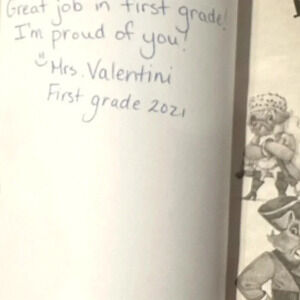 Great job in first grade!
I'm proud of you!
Mrs. Valentini
First grade 2021